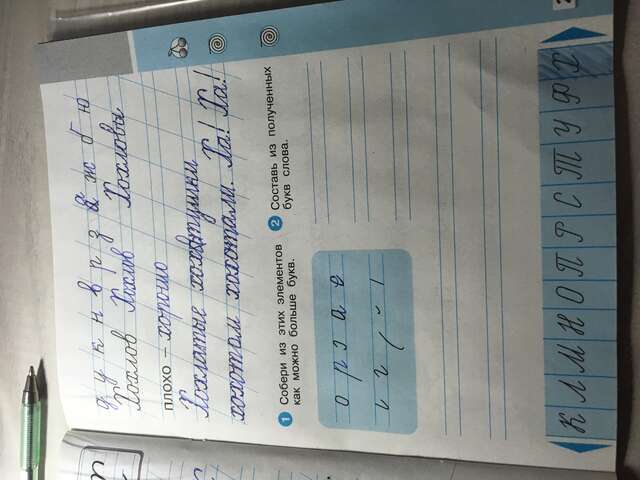 у к н в р з ж б ю
Хохлов Хохлов Хохловы
плохо – хорошо
Хохлатые хохотушки
хохотом хохотали. Ха! Ха!
1 Собери из этих элементов
как можно больше букв.
2 Составь из полученных
букв слова.
К Л М Н О П Р С Т У Ф Х